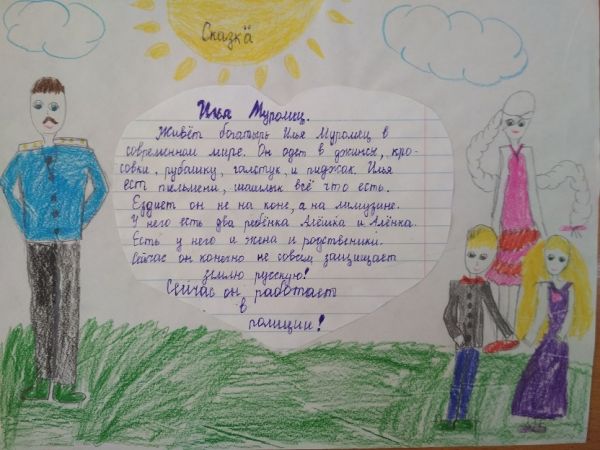 Сказка
Илья Муромец.
Живёт богатырь Илья Муромец в
современном мире. Он одет в джинсы, кро-
совки, рубашку, галстук, и пиджак. Илья
ест пельмени, шашлык всё что есть.
Ездиет он не на коне, а на лимузине.
У него есть два ребёнка Алёшка и Алёнка.
Есть у него и жена и родственики.
Сейчас он конечно не совсем защищает
землю русскую!
Сейчас он работает
в
полиции!